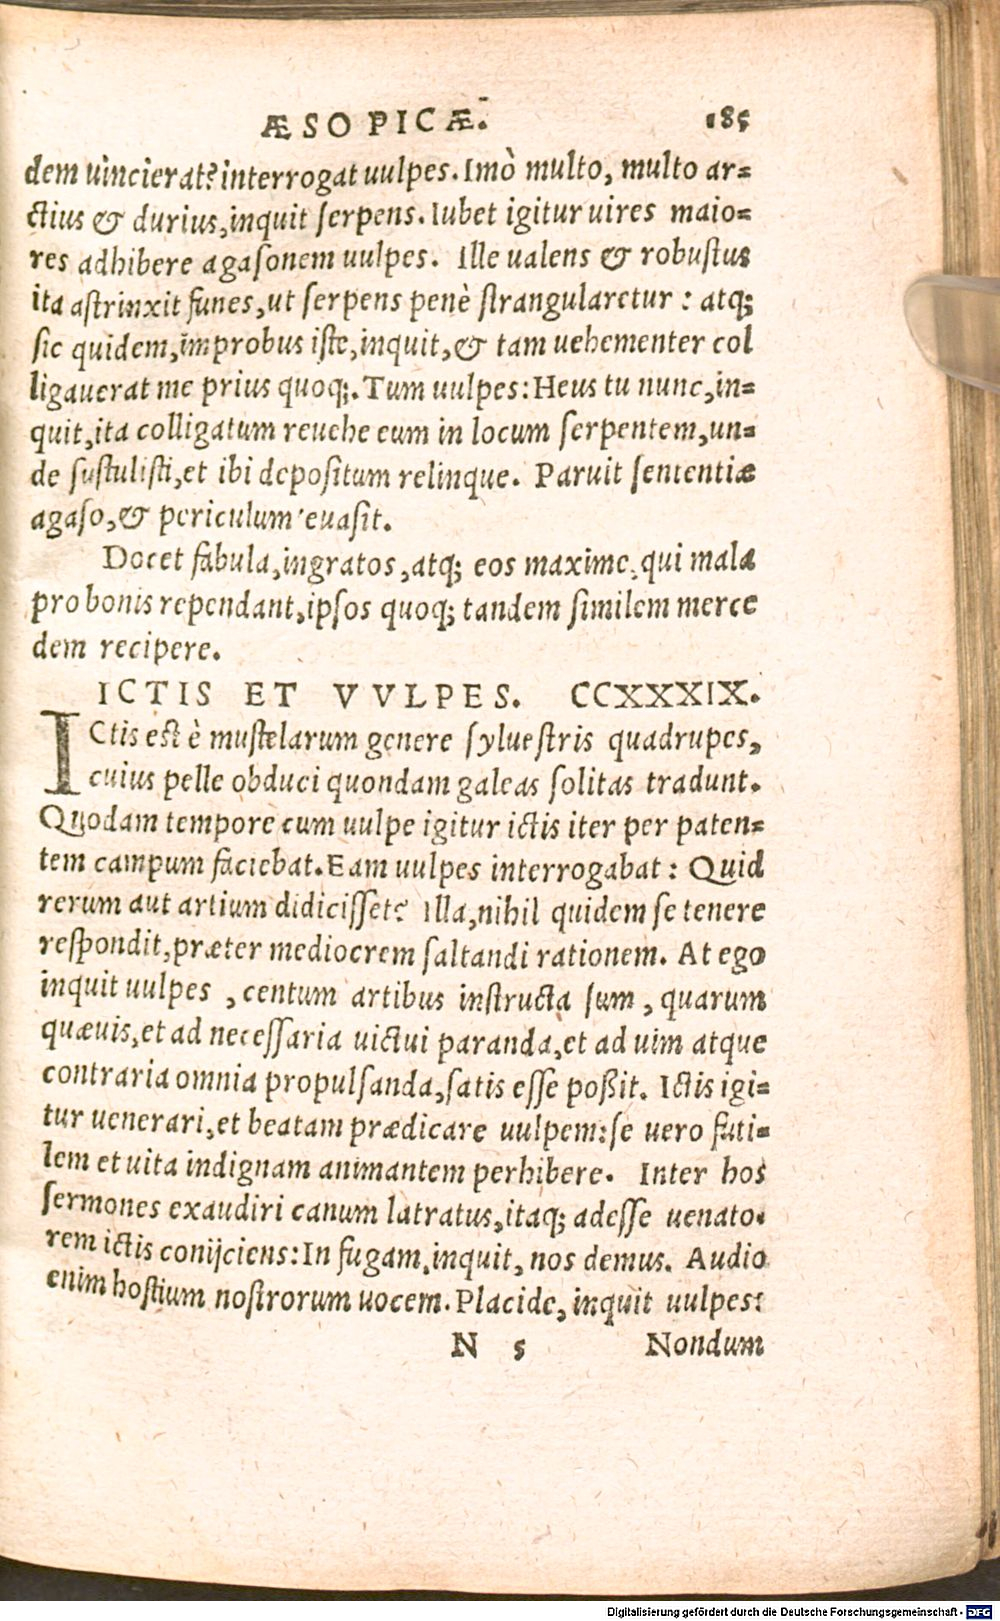 ÆSOPICÆ. 185
dem uincierat? interrogat uulpes. Imò multo, multo ar=
ctius & durius, inquit serpens. Iubet igitur uires maio=
res adhibere agasonem uulpes. Ille ualens & robustus
ita astrinxit funes, ut serpens penè strangularetur: atq;
sic quidem, improbus iste, inquit, & tam uehementer col
ligauerat me prius quoq;. Tum uulpes: Heus tu nunc, in=
quit, ita colligatum reuehe eum in locum serpentem, un=
de sustulisti, et ibi depositum relinque. Paruit sententiæ
agaso, & periculum euasit.
Docet fabula, ingratos, atq; eos maxime, qui mala
pro bonis rependant, ipsos quoq; tandem similem merce
dem recipere.
ICTIS ET VVLPES. CCXXXIX.
ICtis est è mustelarum genere syluestris quadrupes,
cuius pelle obduci quondam galeas solitas tradunt.
Quodam tempore cum uulpe igitur ictis iter per paten=
tem campum faciebat. Eam uulpes interrogabat: Quid
rerum aut artium didicisset? illa, nihil quidem se tenere
respondit, præter mediocrem saltandi rationem. At ego
inquit uulpes, centum artibus instructa sum, quarum
quæuis, et ad necessaria uictui paranda, et ad uim atque
contraria omnia propulsanda, satis esse poßit. Ictis igi=
tur uenerari, et beatam prædicare uulpem: se uero futi=
lem et uita indignam animantem perhibere. Inter hos
sermones exaudiri canum latratus, itaq; adesse uenato=
rem ictis conijciens: In fugam, inquit, nos demus. Audio
enim hostium nostrorum uocem. Placide, inquit uulpes:
N 5 Nondum
Digitalisierung gefördert durch die Deutsche Forschungsgemeinschaft - DFG